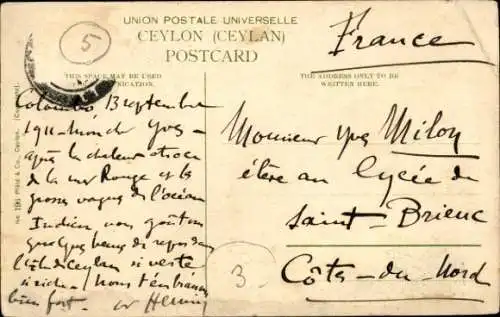 UNION POSTALE UNIVERSELLE
CEYLON (CEYLAN)
POSTCARD
THIS SPACE MAY BE USED
THE ADDRESS ONLY TO BE
WRITTEN HERE.
5
France
Colombo, 13 septembre
1911 Mon cher Yves –
après la chaleur atroce
de la mer Rouge et les
grosses vagues de l'océan
Indien, nous goûtons
quelques heures de repos dans
l'île de Ceylan si verte
si riche. Nous t'embrassons
bien fort.
Monsieur Yves Milon
élève au lycée de
Saint-Brieuc
Côtes-du-Nord
3